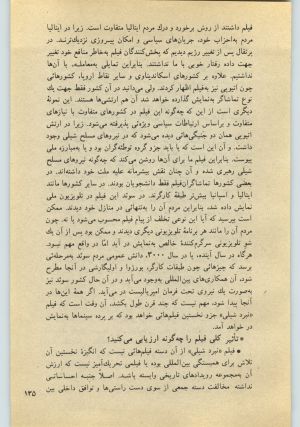 فیلم داشتند از روش برخورد و درك مردم ایتالیا متفاوت است. زیرا در ایتالیا
مردم به‌احزاب خود، جریان‌های سیاسی و امکان پیروزی نزدیك‌ترند. در
پرتقال پس از تغییر رژیم دیدیم که پخش‌کنندگان فیلم به‌خاطر منافع خود تغییر
جهت داده رفتار خوبی با ما نداشتند. بنابراین تمایلی به‌معامله، با آن‌ها
نداشتیم. علاوه بر کشورهای اسکاندیناوی و سایر نقاط اروپا، کشورهائی
چون اتیوپی نیز به‌فیلم اظهار کردند. ولی می‌دانید در آن کشور فقط جهت یك
نوع تماشاگر به‌نمایش گذارده خواهد شد آن هم ارتشی‌ها هستند. این نمونهٔ
دیگری است از این که چه‌گونه این فیلم در کشورهای متفاوت با نیازهای
متفاوت و براساس ارتباطات سیاسی ویژه‌ئی پذیرفته می‌شود. زیرا در ارتش
اتیوپی همان دو جنبگی‌هائی دیده می‌شود که در نیروهای مسلح شیلی وجود
داشت. و آن این است که یا باید جزو گروه توطئه‌گران بود و یا به‌مبارزه ملی
پیوست. بنابراین فیلم ما برای آن‌ها روشن می‌کند که چه‌گونه نیروهای مسلح
شیلی رهبری شده و آن چنان نقش بیشرمانه علیه ملت خود داشته‌اند. در
بعضی کشورها تماشاگران‌فیلم فقط دانشجویان بودند. در سایر کشورها مانند
ایتالیا و اسپانیا بیش‌تر طبقهٔ کارگرند. در سوئد این فیلم در تلویزیون ملی
نمایش داده شده بنابراین مردم آن را به‌تنهائی در منازل خود دیدند. ممکن
است بپرسید که آیا این نوعی تخلف از پیام فیلم محسوب می‌شود یا نه. چون
مردم آن را مانند هر برنامهٔ تلویزیونی دیگری دیدند و ممکن بود پس از آن یك
شو تلویزیونی سرگرم‌کنندهٔ خالص به‌نمایش در آید اما در واقع مهم نبود.
هرگاه در سال آینده، یا در سال ۳۰۰۰، دانش عمومی مردم سوئد به‌مرحله‌ئی
برسد که چیزهائی چون طبقات کارگر، بورژوا و اولیگارشی در آنجا مطرح
شود، آن همکاری‌های بین‌المللی به‌وجود می‌آید و در آن حال کشور سوئد نیز
به‌صورت یك نیروی تحت فرمان امپریالیست در می‌آید. اگر همهٔ این‌ها در
آنجا پیدا شود، مهم نیست که چند قرن طول بکشد، آن وقت است که فیلم
«نبرد شیلی» جزو نخستین فیلم‌هائی خواهد بود که بر پرده سینماها به‌نمایش
در خواهد آمد.
* تأثیر کلی فیلم را چه‌گونه ارزیابی می‌کنید؟
* فیلم «نبرد شیلی» از آن دسته فیلم‌هائی نیست که انگیزهٔ نخستین آن
تلاش برای همبستگی بین‌المللی بوده یا فیلمی تحریك‌آمیز نیست که ارزش
آن به‌مجموعه رویدادهای تاریخی وابسته باشد. اصلاً جنبه احساساتی
نداشته مخالفت دسته جمعی از سوی دست راستی‌ها و توافق داخلی بین
۱۳۵